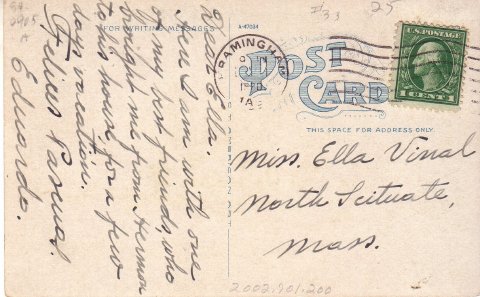 FOR WRITING MESSAGES
A-47034
Dear Ella.
Here I am with one
of my best friends, who
brought me from Hermon
to his house for a few
days vacation.
Felices Pascuas.
Eduardo.
I/33
25
FRAMINGHAM
POST
CARD
U.S. POSTAGE
1 CENT 1
THIS SPACE FOR ADDRESS ONLY.
Miss. Ella Vinal
North Scituate,
Mass.
2002.901.200